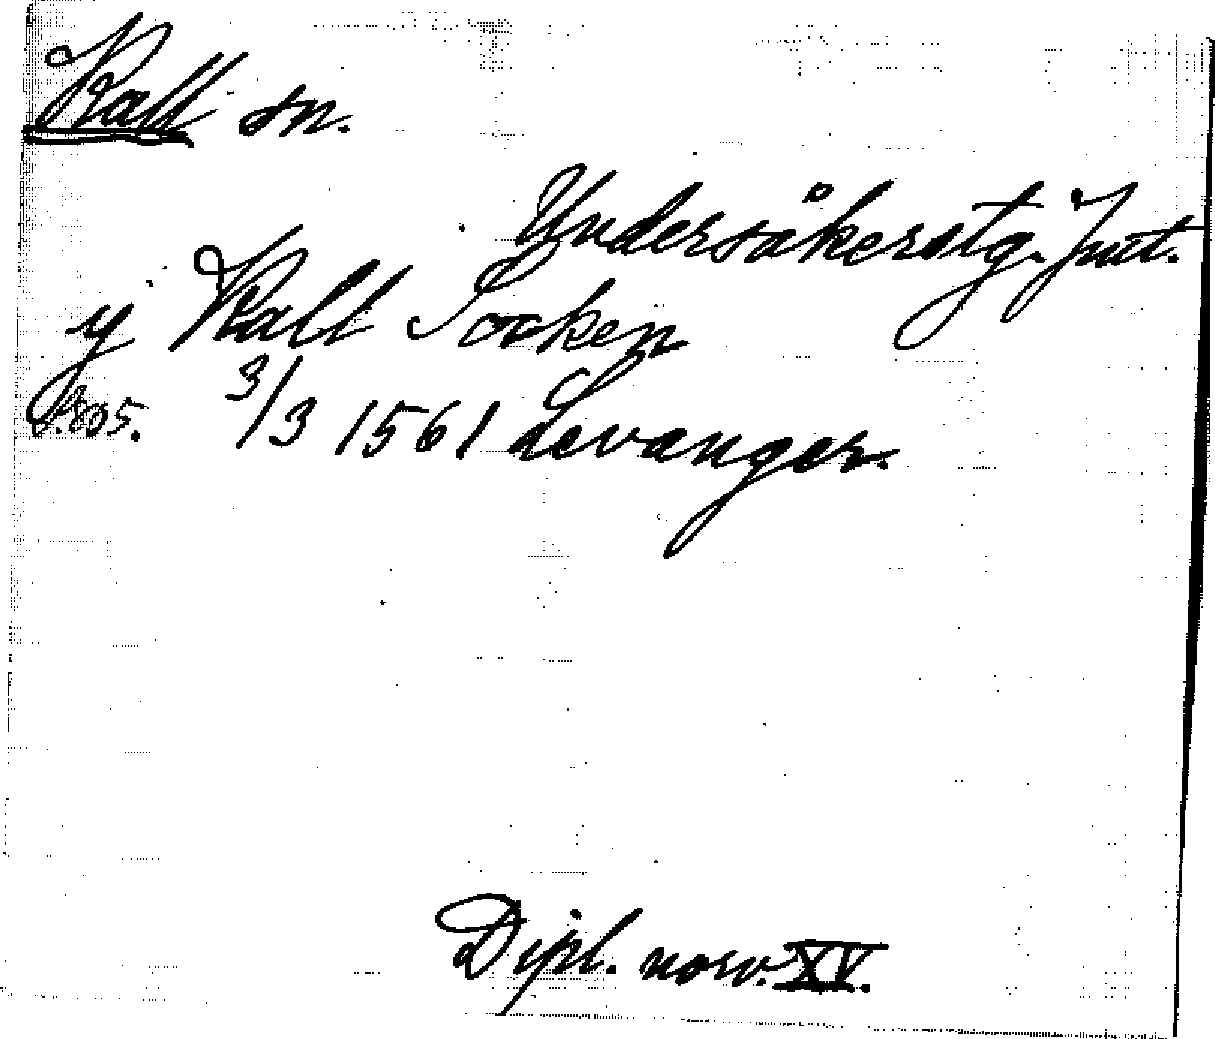 Kall sn.
Undersåkerstg. Jmt.
y Kall Socken
s.805. 3/3 1561 Levanger.
Dipl. norv. XV.